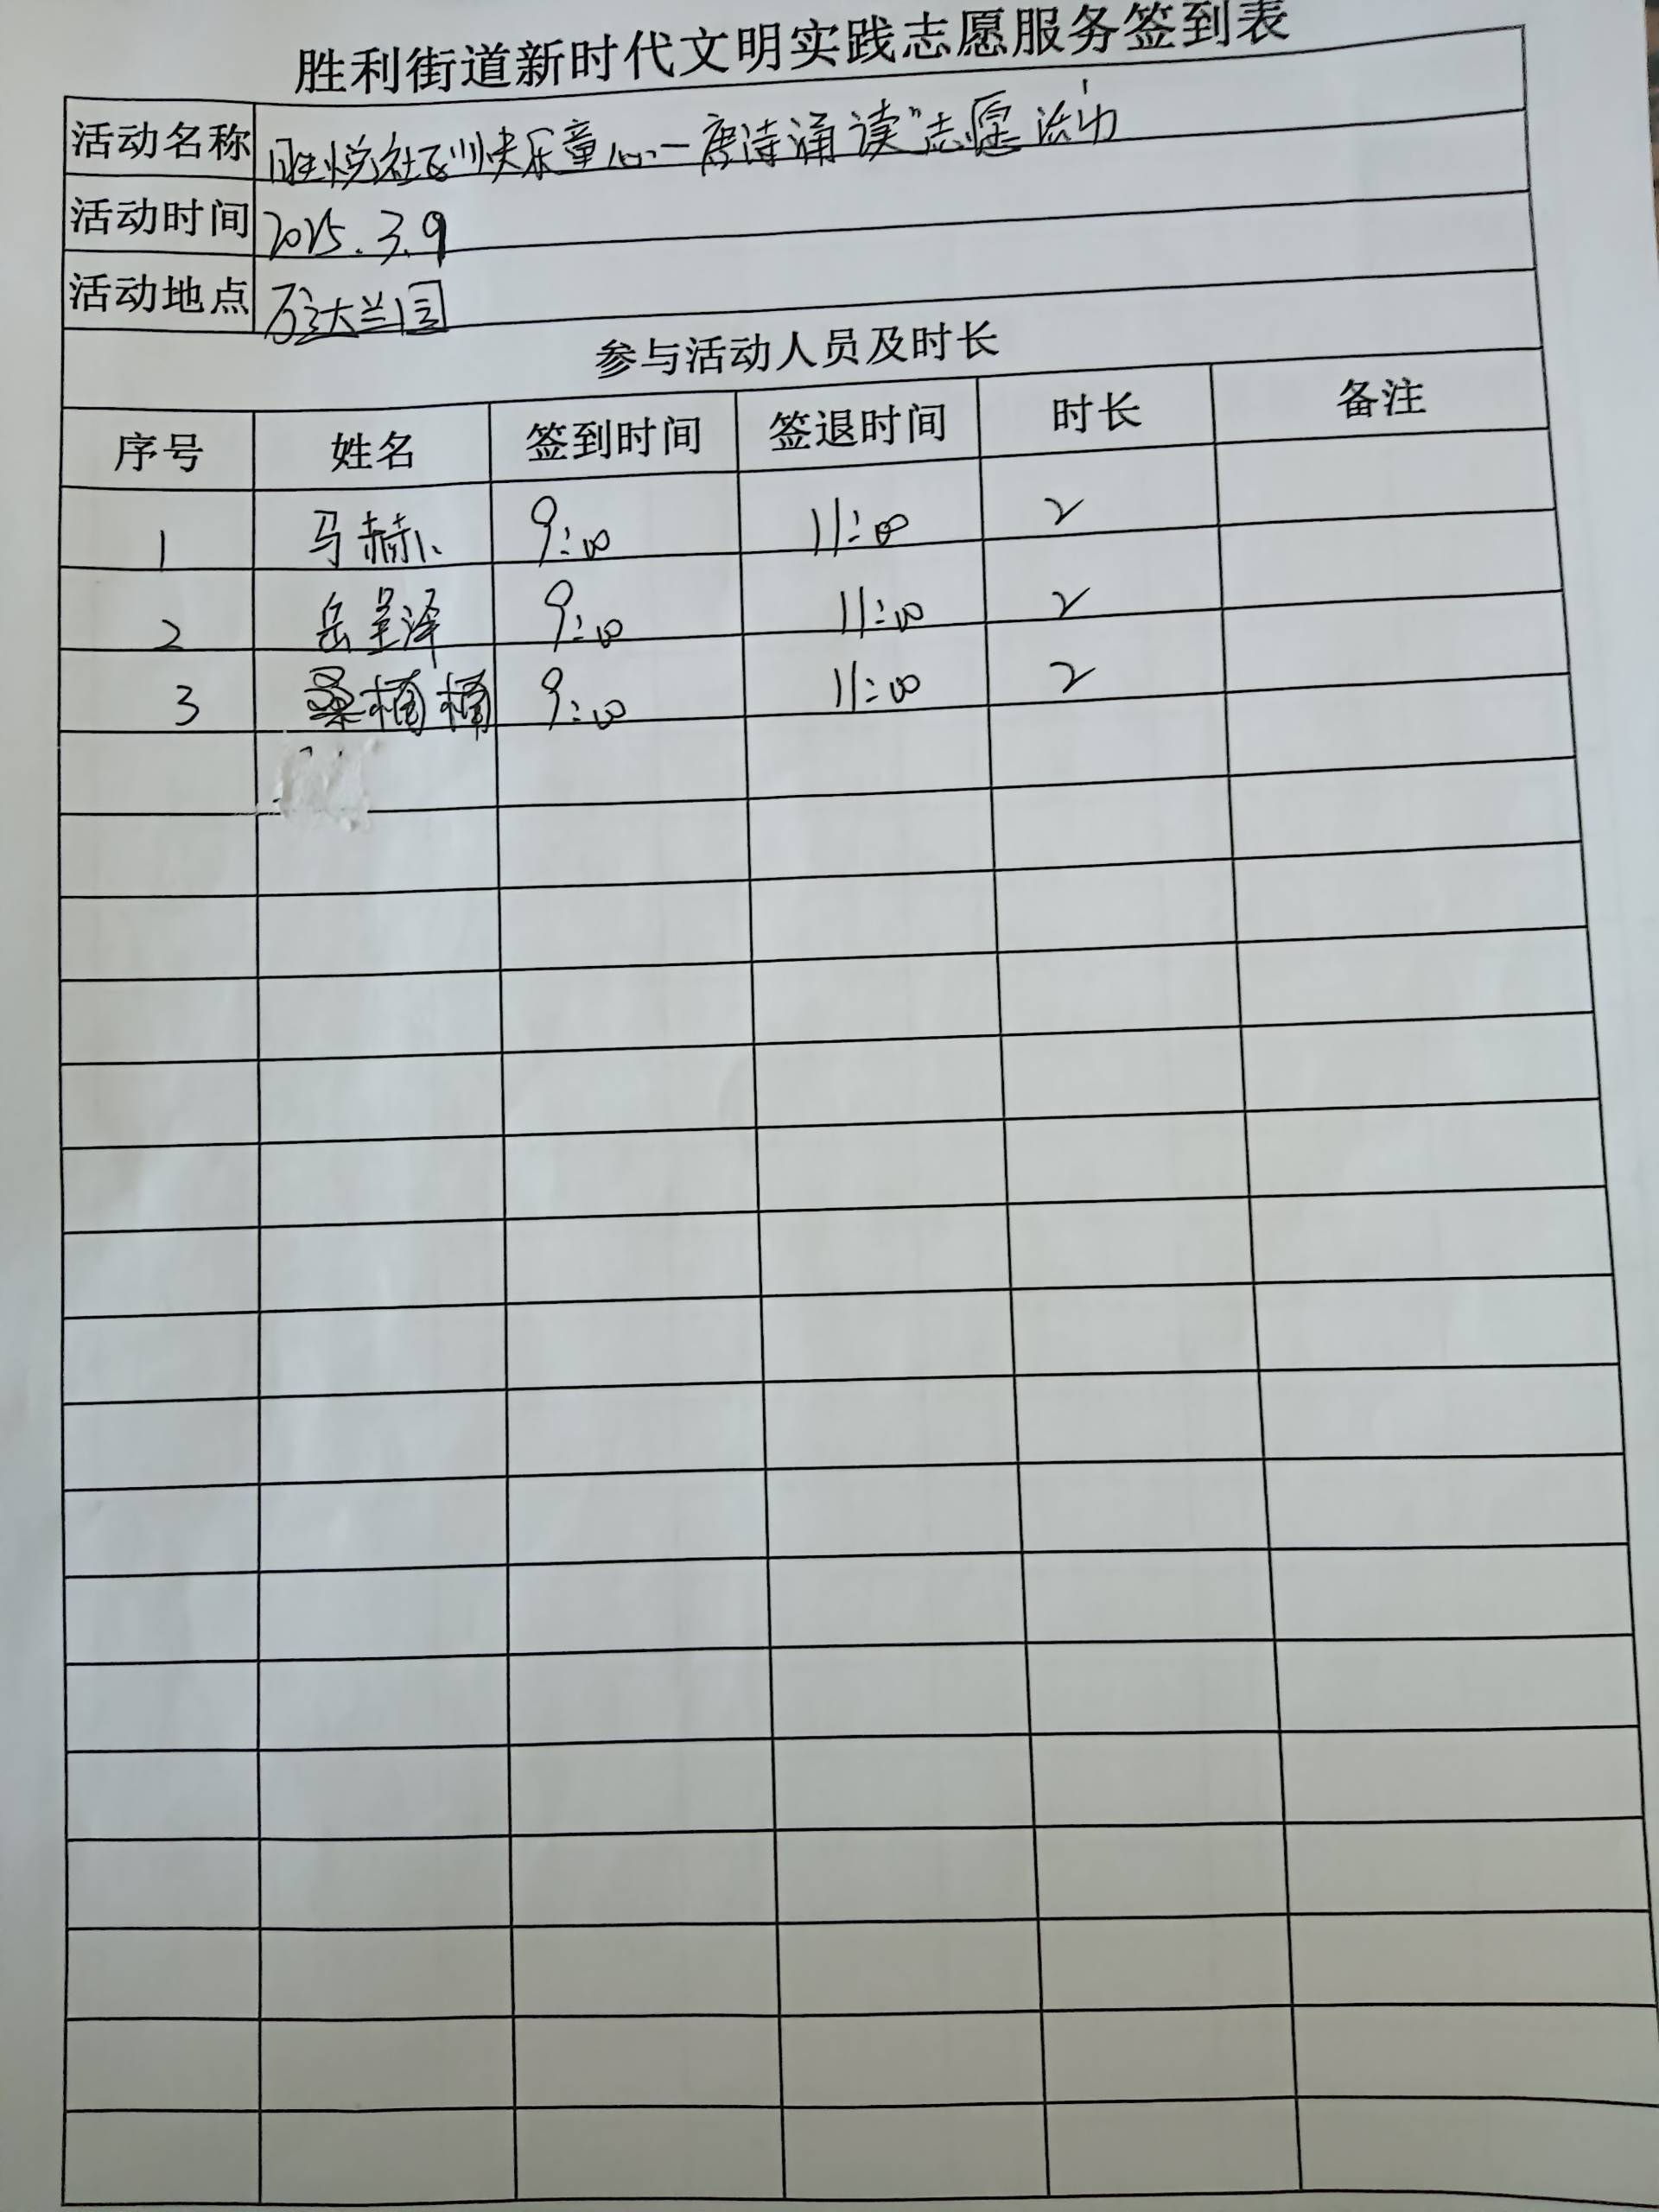 胜利街道新时代文明实践志愿服务签到表
活动名称 胜悦社区"快乐童心—唐诗诵读"志愿活动
活动时间 2025.3.9
活动地点 万达兰园
参与活动人员及时长
序号 姓名 签到时间 签退时间 时长 备注
1 马赫 9:00 11:00 2
2 岳呈泽 9:00 11:00 2
3 桑楠楠 9:00 11:00 2